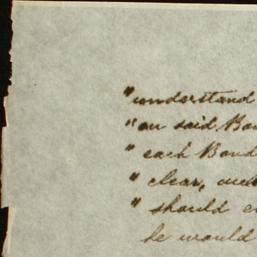 "understand
"on said Bon
" each Bond
" clear, and
" should e
he would